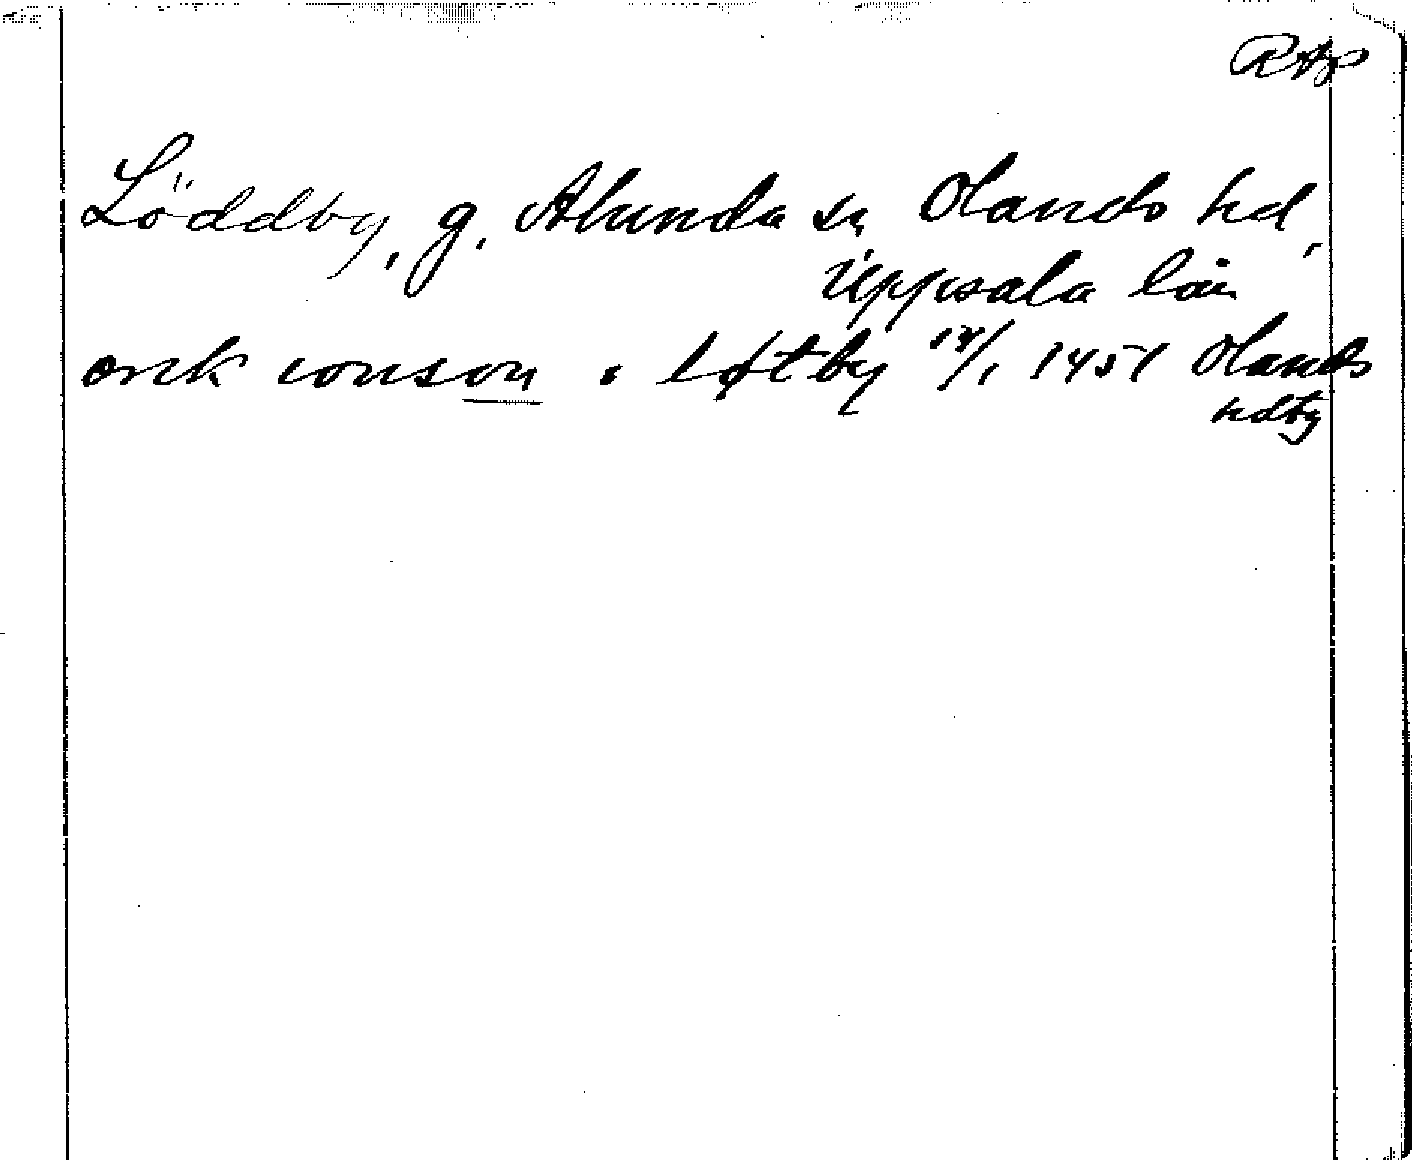 RAp
Löddby, g. Alunda sn Olands hd,
Uppsala län
ønk ionson i løtby 14/1 1451 Olands
hdbg